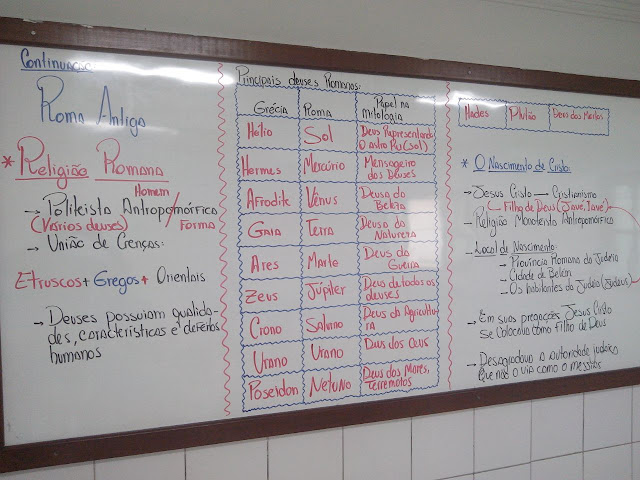 Continuação
Roma Antiga
* Religião Romana
Homem
→ Politeísta Antropomórfica
(Vários deuses) Forma
→ União de Crenças:
Etruscos + Gregos + Orientais
→ Deuses possuiam qualida-
des, características e defeitos
humanos
Principais deuses Romanos:
Grécia Roma Papel na mitologia
Hélio Sol Deus Representando
O astro Rei (Sol)
Hermes Mercúrio Mensageiro
dos Deuses
Afrodite Vênus Deusa da
Beleza
Gaia Terra Deusa da
Natureza
Ares Marte Deus da
Guerra
Zeus Júpiter Deus de todos os
deuses
Crono Saturno Deus da Agricultu-
ra
Urano Urano Deus dos Céus
Poseidon Netuno Deus dos Mares,
Terremotos
Hades Plutão Deus dos Mortos
* O Nascimento de Cristo
→ Jesus Cristo — Cristianismo
Filho de Deus (Javé, Javé)
→ Religião Monoteísta Antropomórfica
→ Local de Nascimento:
→ Província Romana da Judéia
→ Cidade de Belém
→ Os habitantes da Judéia (Judeus)
→ Em suas pregações Jesus Cristo
se colocava como filho de Deus
→ Desagradava a autoridade judaica
que não o via como o messias